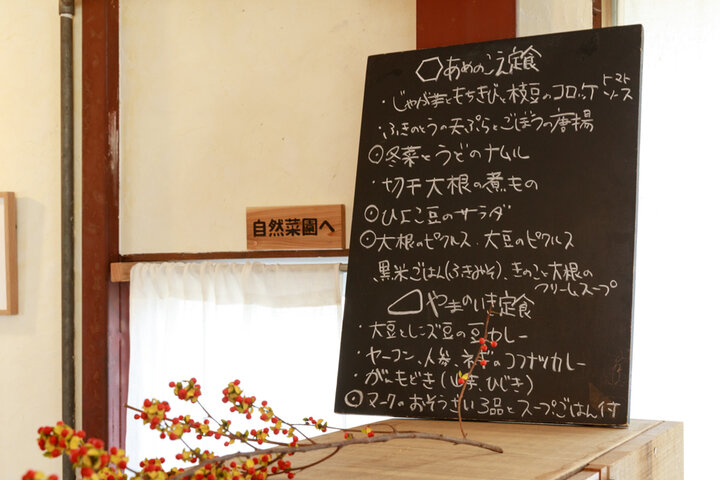 あめのこえ定食
・じゃが芋ともちきびと枝豆のコロッケ トマトソース
・ふきのとうの天ぷらとごぼうの唐揚
◎冬菜とうどのナムル
・切干大根の煮もの
◎ひよこ豆のサラダ
◎大根のピクルス、大豆のピクルス
黒米ごはん(ふきみそ)、きのこと大根のクリームスープ
やまのいき定食
・大豆とレンズ豆の豆カレー
・ヤーコン、人参、ネギのココナッツカレー
・がんもどき(山芋、ひじき)
◎マークのおそうざい3品とスープごはん付
自然菜園へ